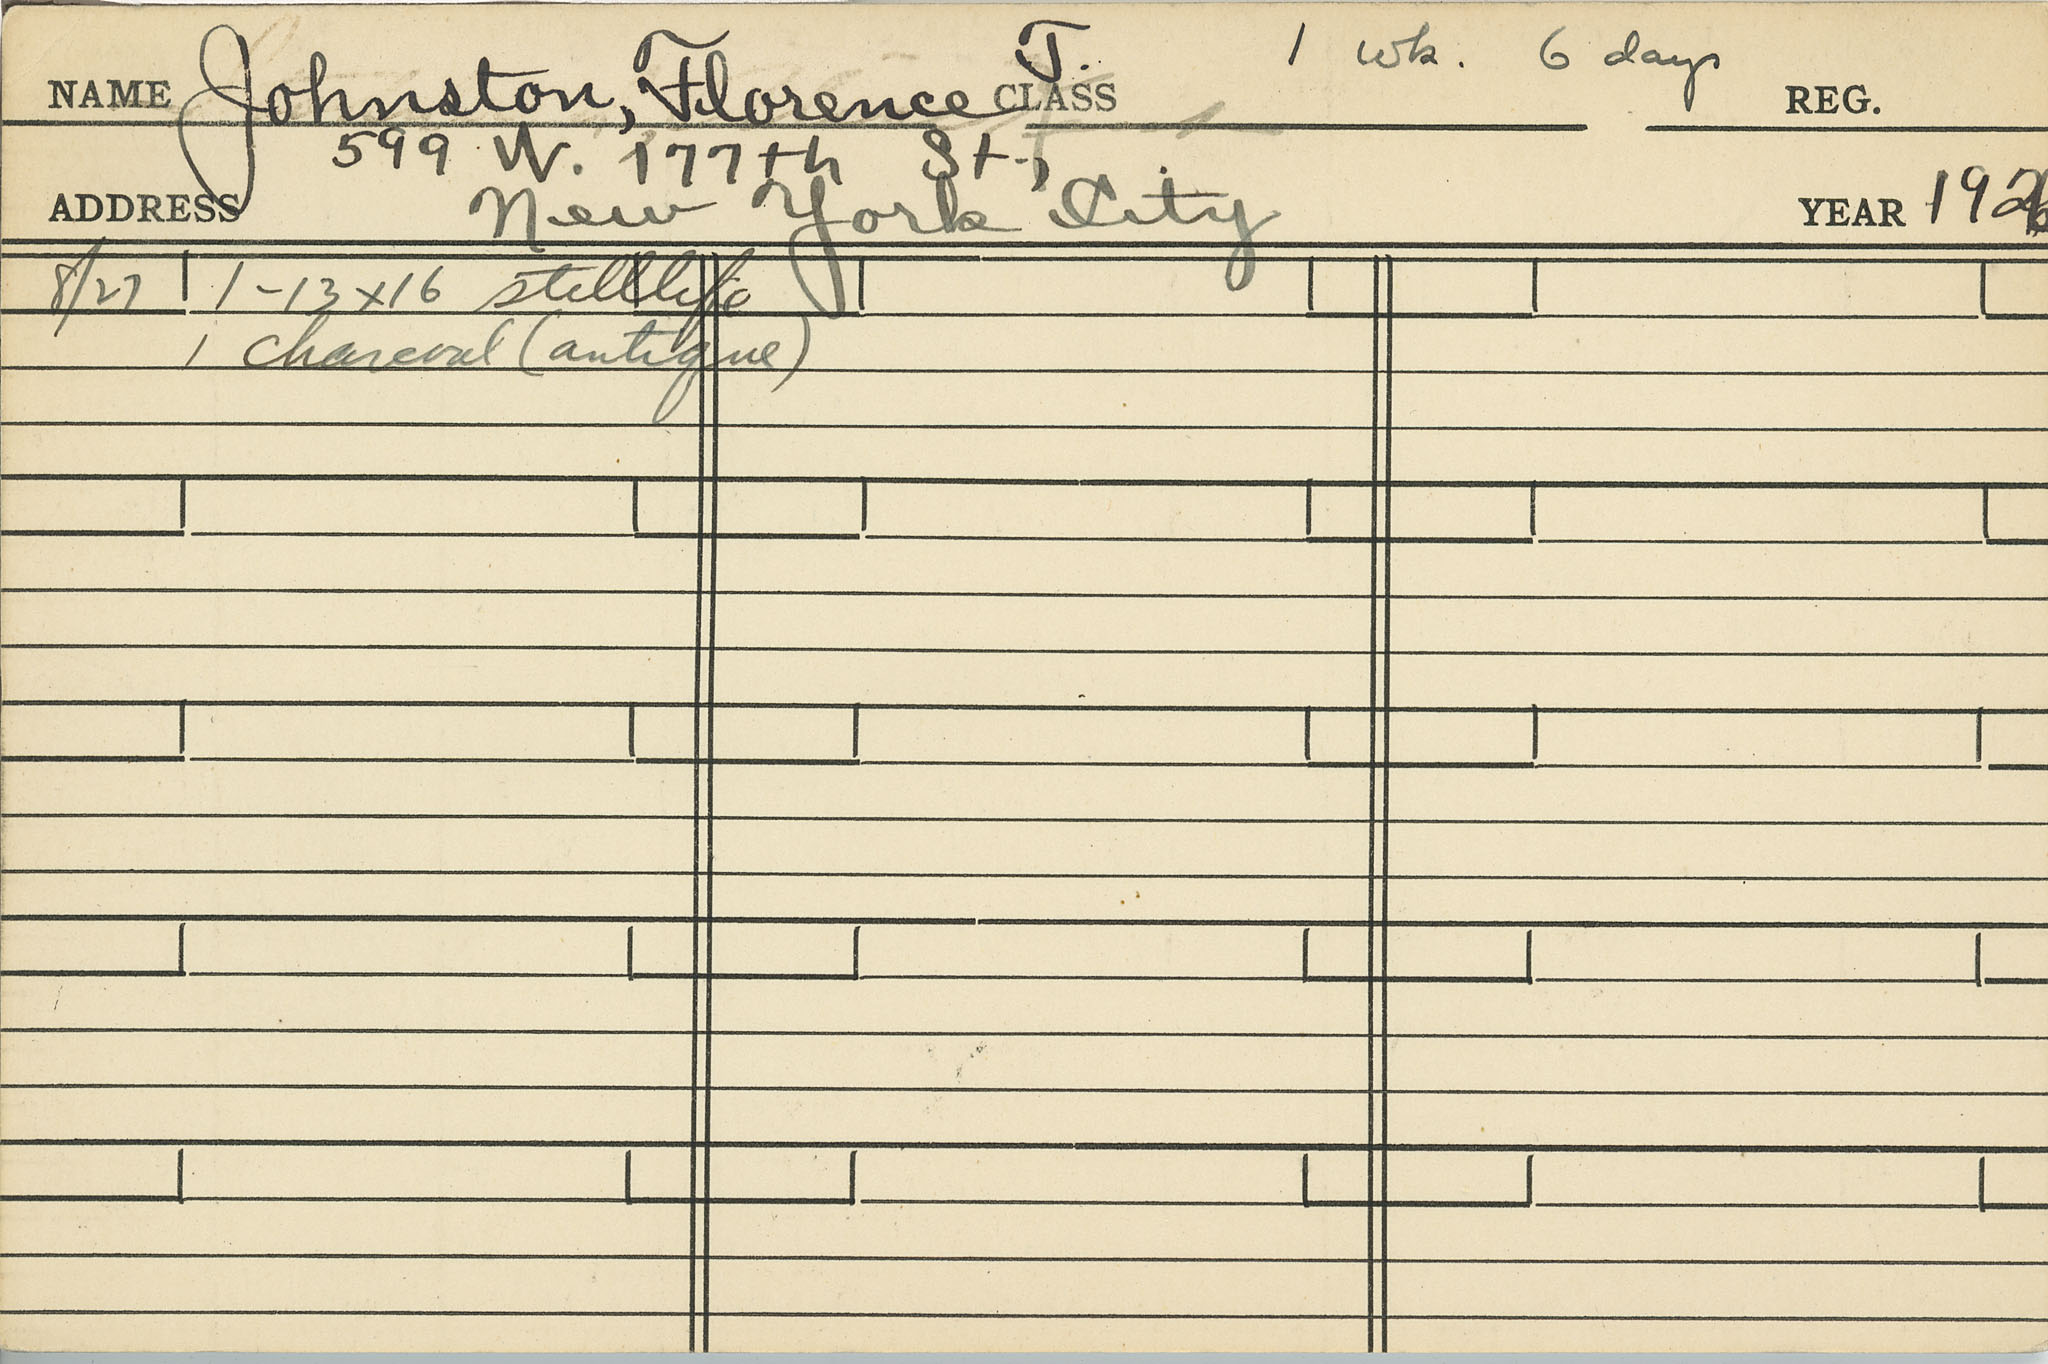 NAME Johnston, Florence T. CLASS 1 wk. 6 days REG.
599 W. 177th St.,
ADDRESS New York City YEAR 1926
8/27 1-13x16 still life
1 charcoal (antique)